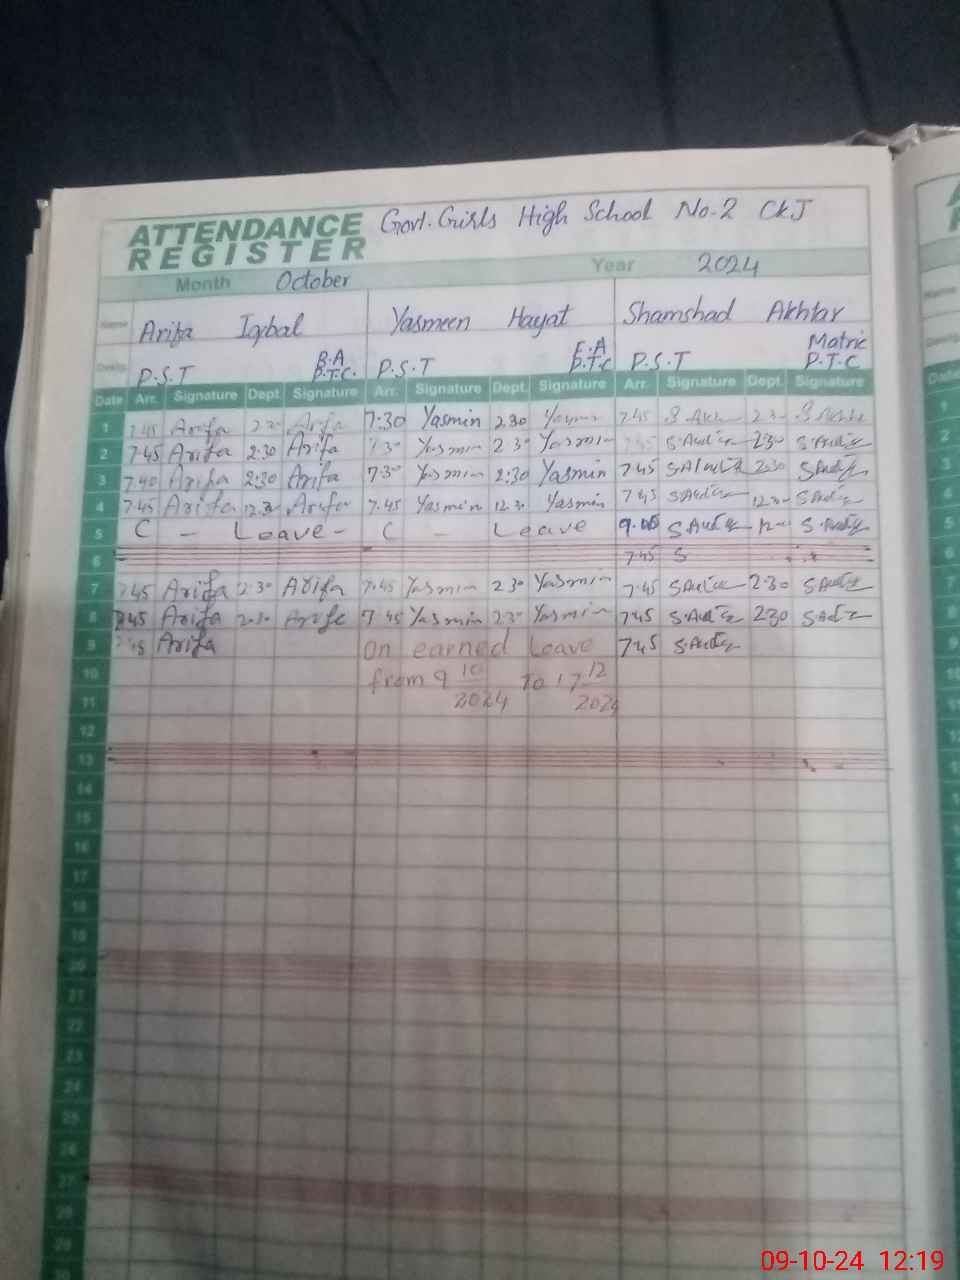 ATTENDANCE REGISTER Govt. Girls High School No-2 CKJ
Month October Year 2024
Name Arifa Iqbal Yasmeen Hayat Shamshad Akhtar
Desig. P.S.T B.A P.T.C. P.S.T F.A P.T.C P.S.T Matric P.T.C
Date Arr. Signature Dept. Signature Arr. Signature Dept. Signature Arr. Signature Dept. Signature
1 7.45 Arifa 2.30 Arifa 7:30 Yasmin 2.30 7.45 2.30
2 7.45 Arifa 2:30 Arifa 7.30 Yasmin 2.30 Yasmin 2.30
3 7.40 Arifa 2:30 Arifa 7.30 Yasmin 2:30 Yasmin 7.45 2.30
4 7.45 Arifa 12.30 Arifa 7.45 Yasmin 12.30 Yasmin 7.45 12.30
5 C - Leave - C - Leave 9.00
6 7.45 S
7 7.45 Arifa 2.30 Arifa 7.45 Yasmin 2.30 Yasmin 7.45 2.30
8 7.45 Arifa 2.30 Arifa 7.45 Yasmin 2.30 Yasmin 7.45 2.30
9 7.45 Arifa On earned Leave 7.45
10 from 9 10/2024 To 17 12/2024
11
12
13
14
15
16
17
18
19
20
21
22
23
24
25
26
27
28
29
09-10-24 12:19